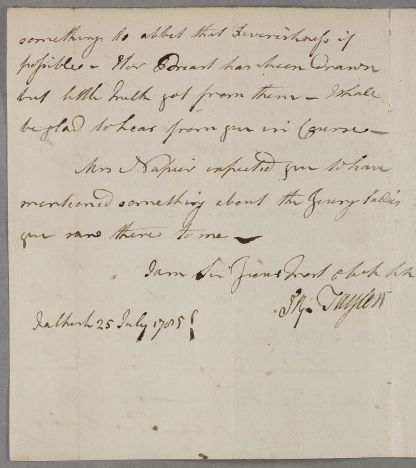 something to abbet that Feverishness if
possible – Her Breast has been drawn
but little Truth got from them – I shall
be glad to hear from you in Course –
Mrs Napier expected you to have
mentioned something about the Young Ladies
you saw there to me –
I am Sir Yours Most
Taylor
Dalkeith 25 July 1785